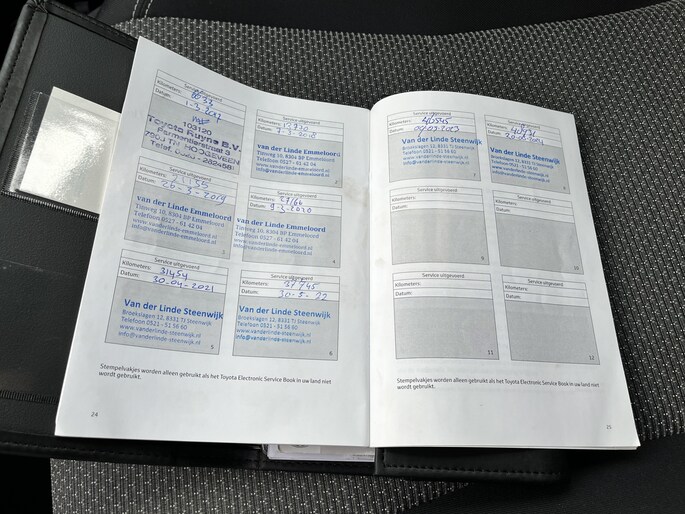 Service uitgevoerd
Kilometers:
Datum: 1-3-2017
103120
Toyota Ruyne B.V.
Parmentierstraat 3
7903 TM HOOGEVEEN
Service uitgevoerd
Kilometers:
Datum:
van der Linde Emmeloord
Titsweg 10, 8304 BP Emmeloord
Telefoon 0527 - 61 42 04
www.vanderlinde-emmeloord.nl
info@vanderlinde-emmeloord.nl
2
Service uitgevoerd
Datum: 26-3-2019
van der Linde Emmeloord
Titsweg 10, 8304 BP Emmeloord
Telefoon 0527 - 61 42 04
www.vanderlinde-emmeloord.nl
info@vanderlinde-emmeloord.nl
3
Service uitgevoerd
Kilometers:
Datum: 9-3-2020
van der Linde Emmeloord
Titsweg 10, 8304 BP Emmeloord
Telefoon 0527 - 61 42 04
www.vanderlinde-emmeloord.nl
info@vanderlinde-emmeloord.nl
4
Service uitgevoerd
Kilometers: 31454
Datum: 30-04-2021
Van der Linde Steenwijk
Broekslagen 12, 8331 TJ Steenwijk
Telefoon 0521 - 51 56 60
www.vanderlinde-steenwijk.nl
info@vanderlinde-steenwijk.nl
5
Service uitgevoerd
Kilometers: 37745
Datum: 30-5-22
Van der Linde Steenwijk
Broekslagen 12, 8331 TJ Steenwijk
Telefoon 0521 - 51 56 60
www.vanderlinde-steenwijk.nl
info@vanderlinde-steenwijk.nl
6
Stempelvakjes worden alleen gebruikt als het Toyota Electronic Service Book in uw land niet
wordt gebruikt.
24
Service uitgevoerd
Kilometers: 40545
Datum:
Van der Linde Steenwijk
Broekslagen 12, 8331 TJ Steenwijk
Telefoon 0521 - 51 56 60
www.vanderlinde-steenwijk.nl
info@vanderlinde-steenwijk.nl
7
Service uitgevoerd
Kilometers:
Datum:
Van der Linde Steenwijk
Broekslagen 12, 8331 TJ Steenwijk
Telefoon 0521 - 51 56 60
www.vanderlinde-steenwijk.nl
info@vanderlinde-steenwijk.nl
8
Service uitgevoerd
Kilometers:
Datum:
9
Service uitgevoerd
Kilometers:
Datum:
10
Service uitgevoerd
Kilometers:
Datum:
11
Service uitgevoerd
Kilometers:
Datum:
12
Stempelvakjes worden alleen gebruikt als het Toyota Electronic Service Book in uw land niet
wordt gebruikt.
25